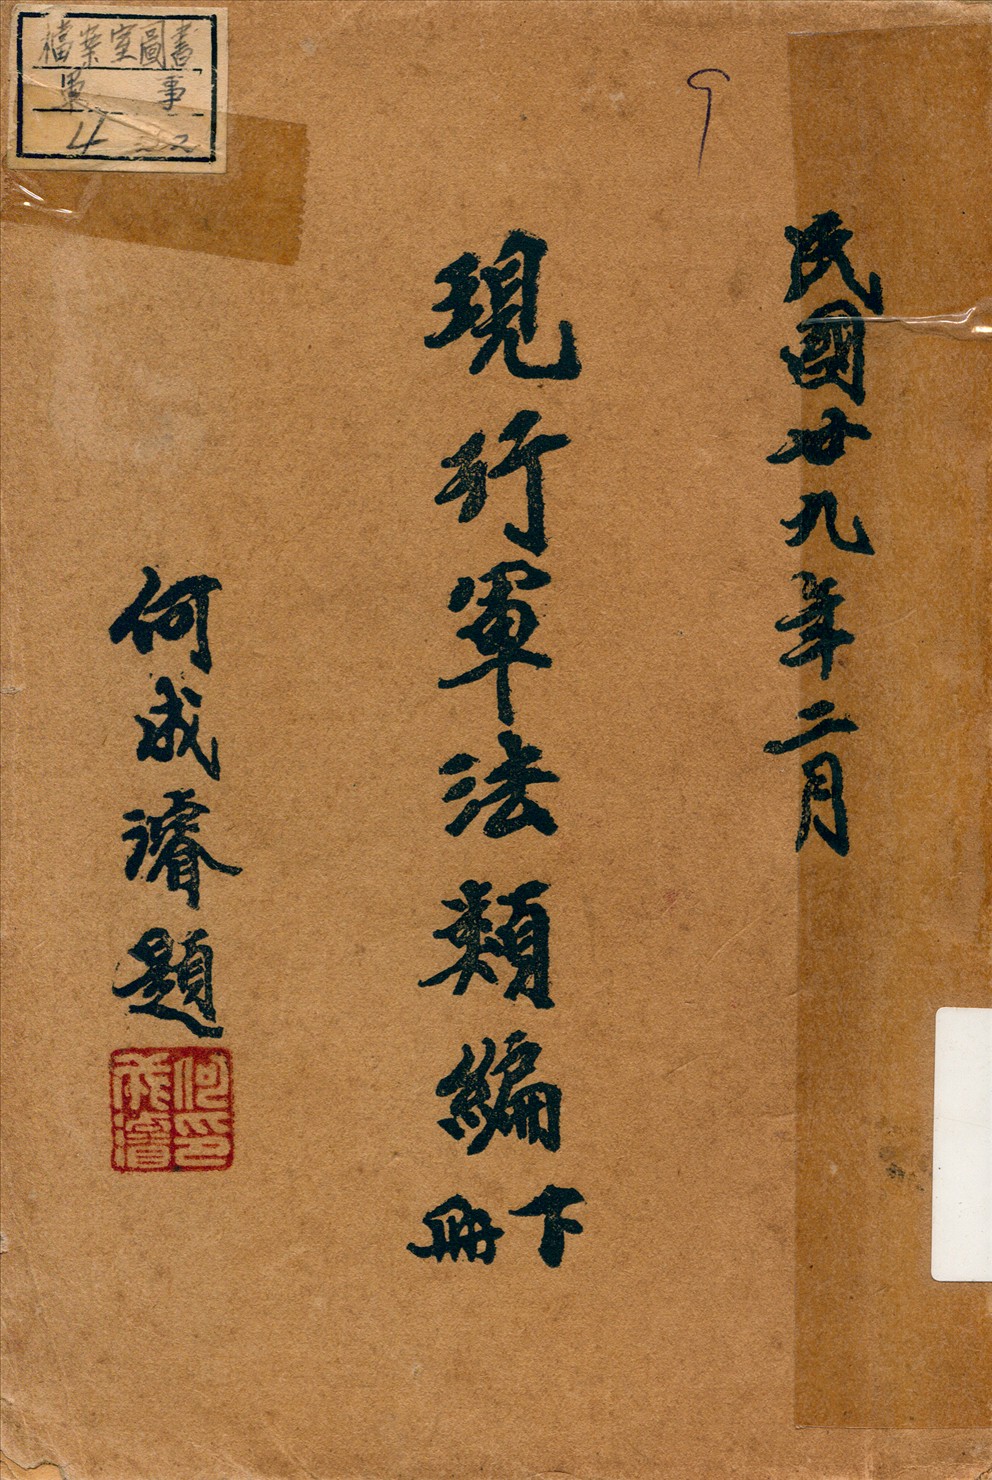 民國廿九年二月
現行軍法類編
下冊
何成濬題
何印成濬
檔案室圖書
軍事
4